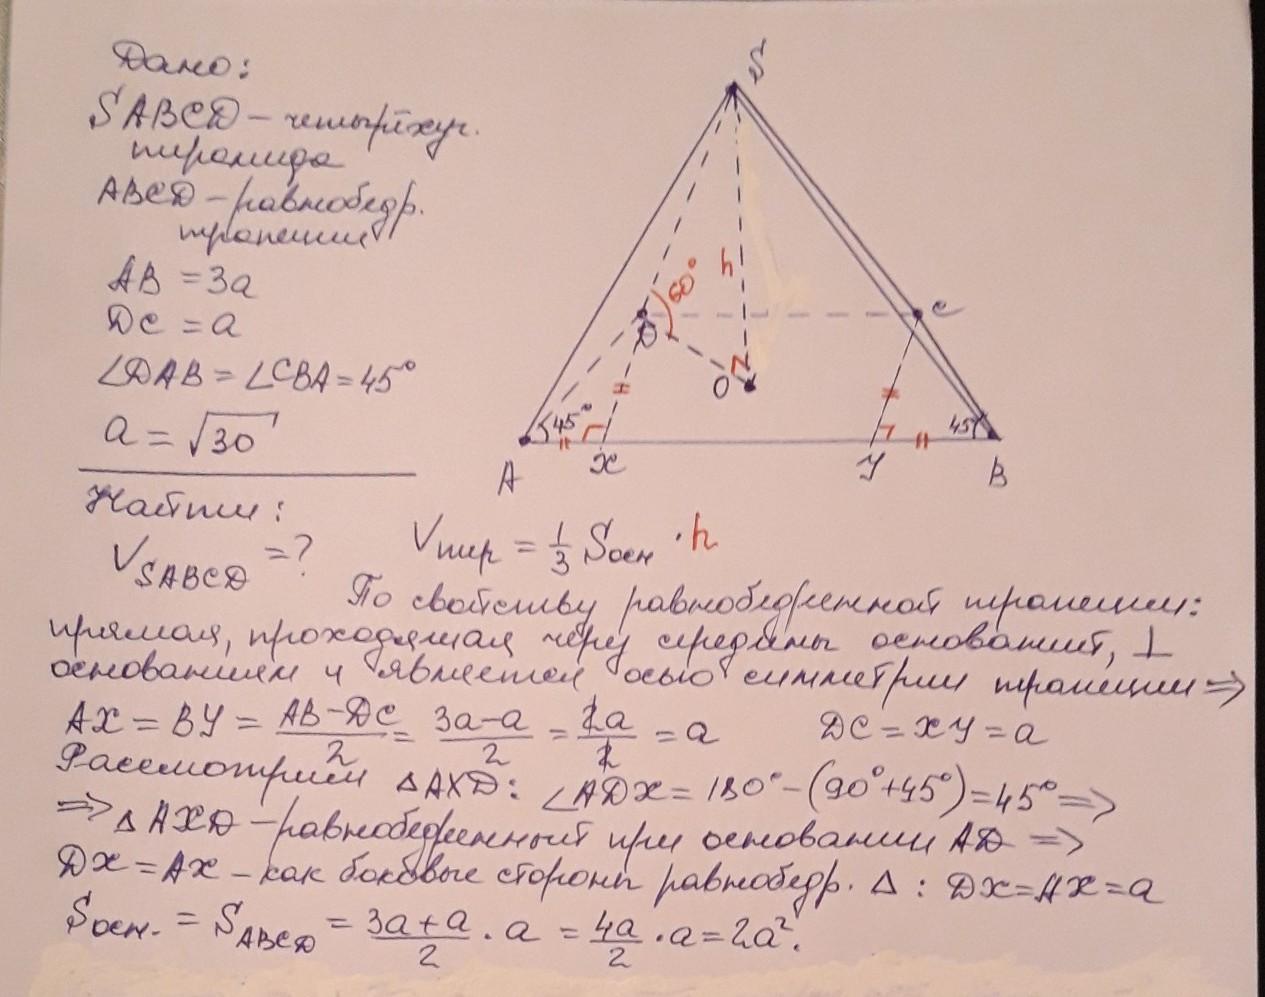 Дано:
SABCD – четырёхуг.
пирамида
ABCD – равнобедр.
трапеции
AB = 3a
DC = a
∠DAB = ∠CBA = 45°
a = √30
Найти:
V_SABCD = ?
S
60°
h
D
C
O
45°
45°
A
X
Y
B
Vпир = 1/3 Sосн · h
По свойству равнобедренной трапеции:
прямая, проходящая через середины оснований, ⊥
основаниям и является осью симметрии трапеции ⇒
AX = BY = (AB – DC)/2 = (3a – a)/2 = 2a/2 = a DC = XY = a
Рассмотрим △AXD: ∠ADX = 180° – (90° + 45°) = 45° ⇒
⇒ △AXD – равнобедренный при основании AD ⇒
DX = AX – как боковые стороны равнобедр. △ : DX = AX = a
Sосн. = S_ABCD = (3a + a)/2 · a = 4a/2 · a = 2a².